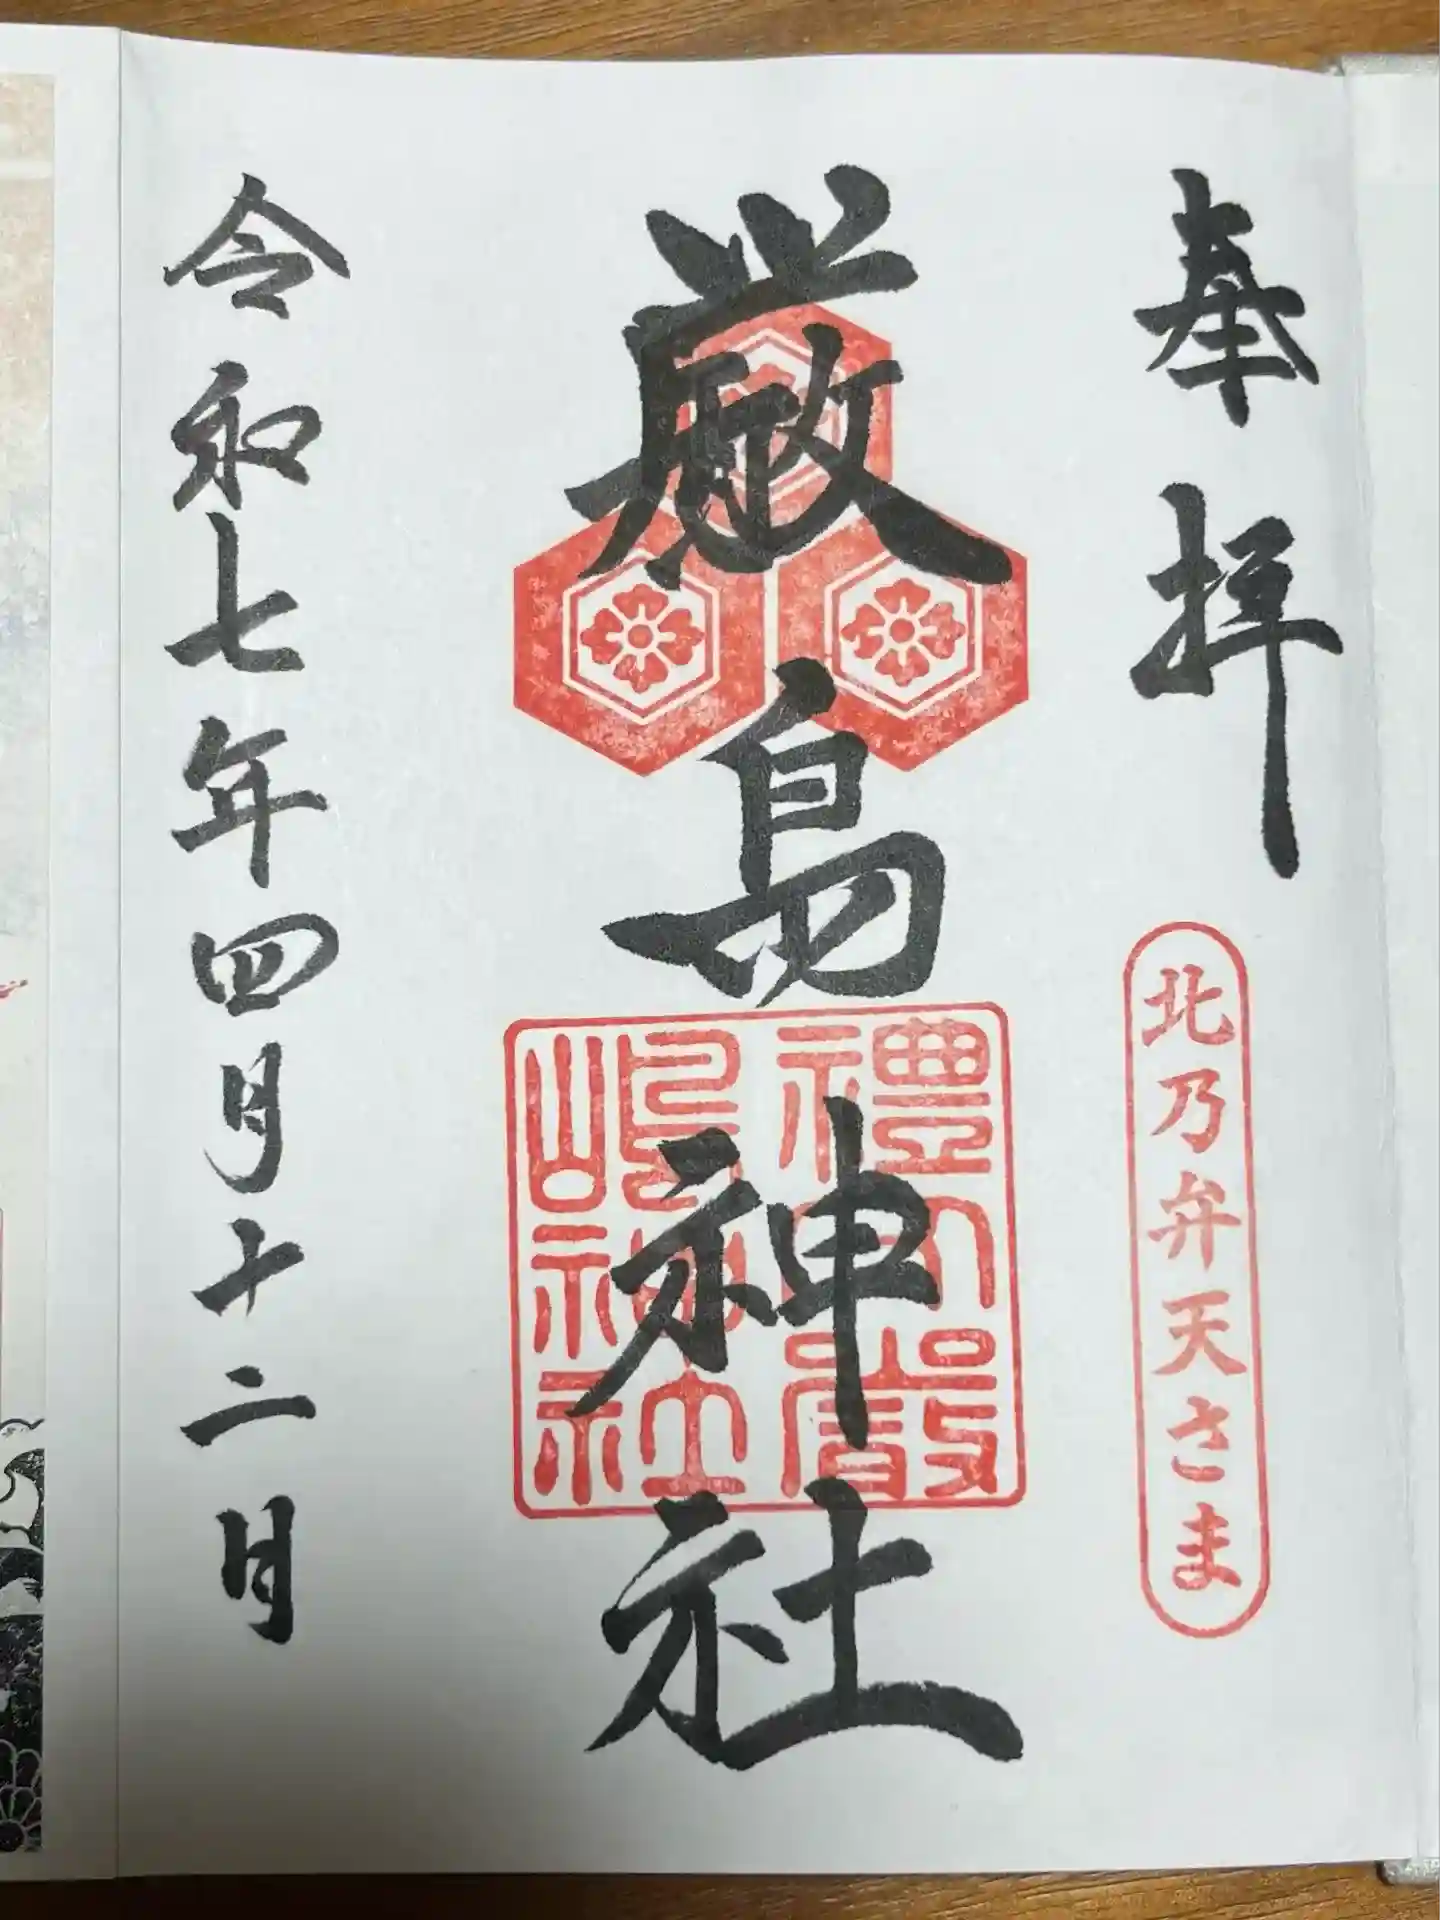 奉拝
北乃弁天さま
厳島神社
禮文嚴
嶋神社
令和七年四月十二日